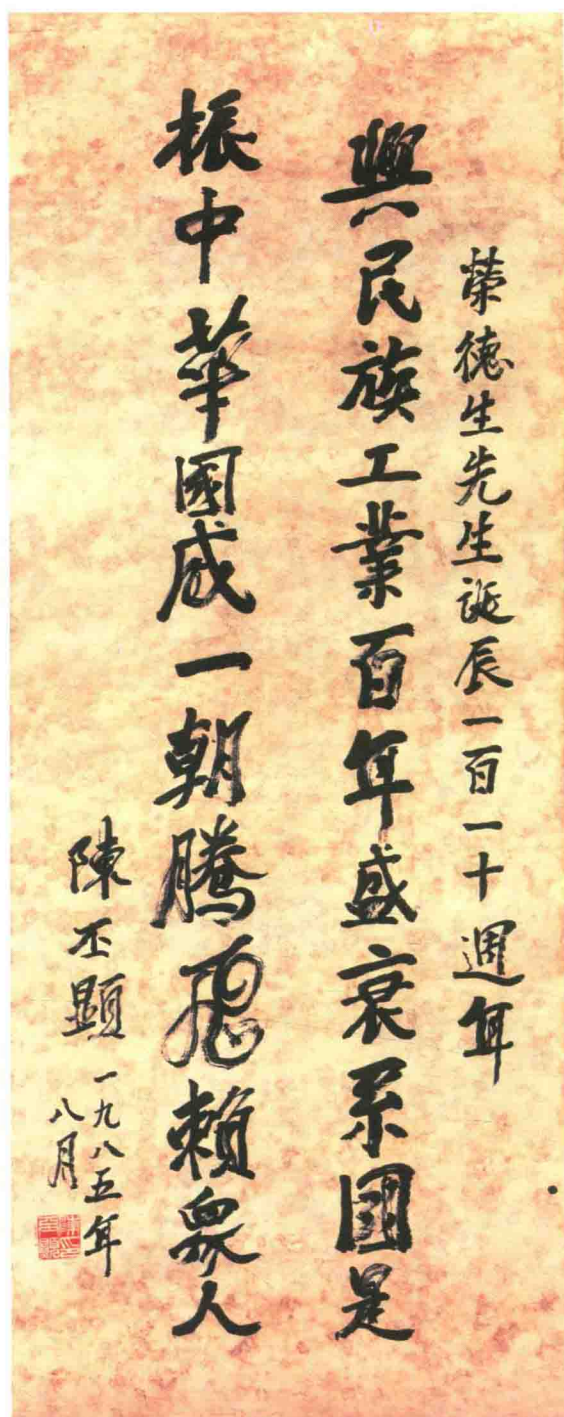 榮德生先生誕辰一百一十週年
興民族工業百年盛衰系國是
振中華國威一朝騰飛賴眾人
陳丕顯
一九八五年
八月